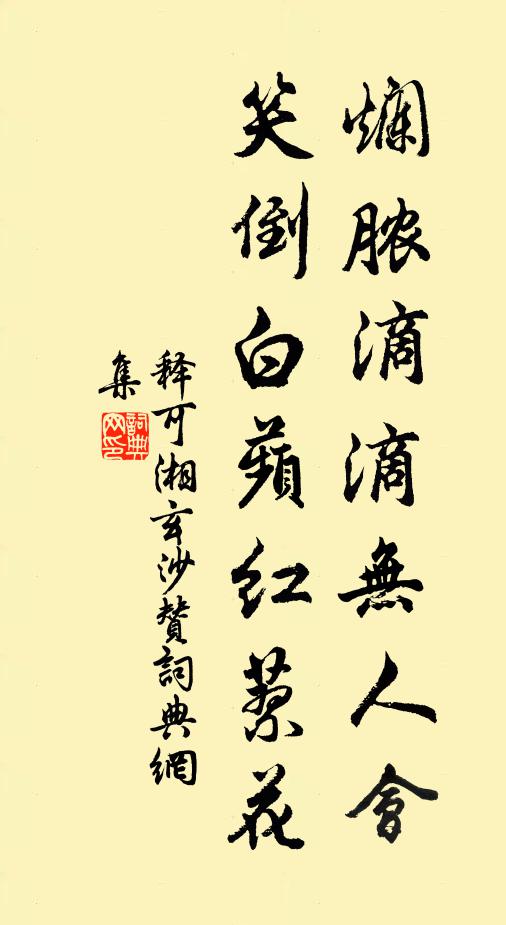 爛脓滴滴無人會
笑倒白蘋紅蓼花
释可湘玄沙赞詞典網
集
詞典网印